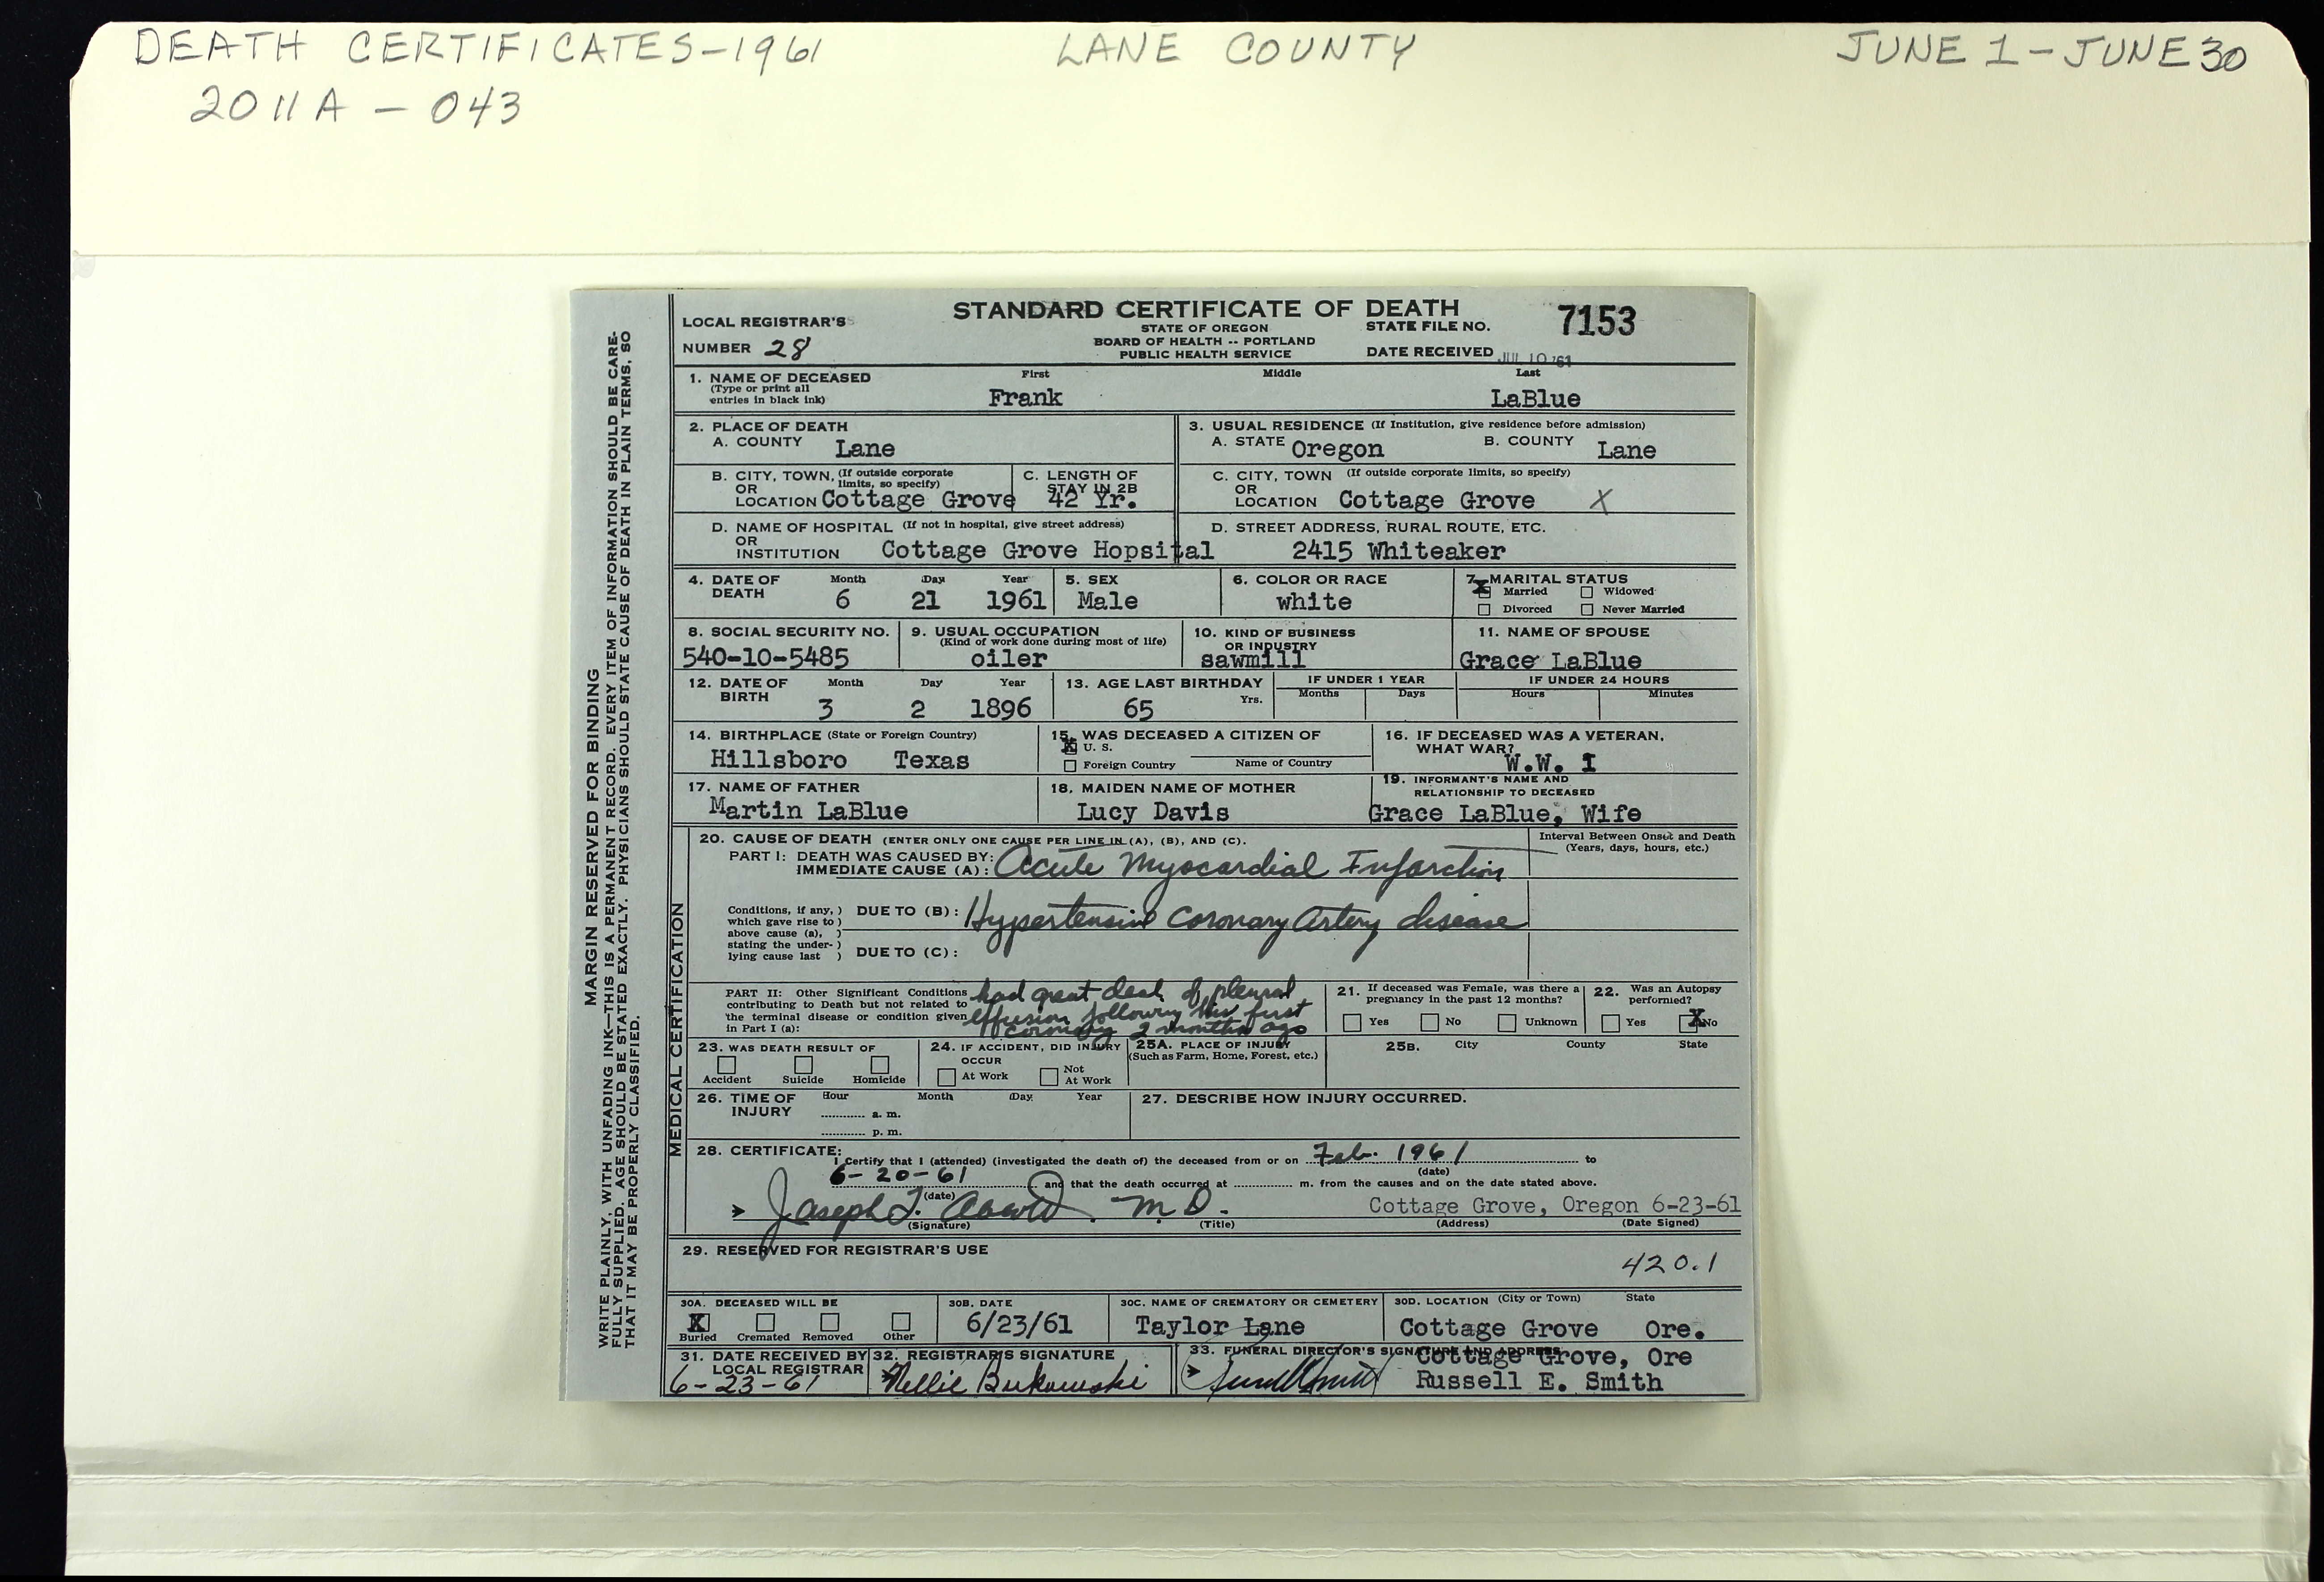 DEATH CERTIFICATES-1961 LANE COUNTY JUNE 1-JUNE 30
2011A - 043
MARGIN RESERVED FOR BINDING
WRITE PLAINLY, WITH UNFADING INK—THIS IS A PERMANENT RECORD. EVERY ITEM OF INFORMATION SHOULD BE CARE-
FULLY SUPPLIED. AGE SHOULD BE STATED EXACTLY. PHYSICIANS SHOULD STATE CAUSE OF DEATH IN PLAIN TERMS, SO
THAT IT MAY BE PROPERLY CLASSIFIED.
STANDARD CERTIFICATE OF DEATH
STATE OF OREGON
BOARD OF HEALTH -- PORTLAND
PUBLIC HEALTH SERVICE
LOCAL REGISTRAR'S
NUMBER 28
STATE FILE NO. 7153
DATE RECEIVED JUL 10 '61
1. NAME OF DECEASED First Middle Last
(Type or print all
entries in black ink) Frank LaBlue
2. PLACE OF DEATH
A. COUNTY Lane
3. USUAL RESIDENCE (If Institution, give residence before admission)
A. STATE Oregon B. COUNTY Lane
B. CITY, TOWN, (If outside corporate
OR limits, so specify)
LOCATION Cottage Grove
C. LENGTH OF
STAY IN 2B
42 Yr.
C. CITY, TOWN (If outside corporate limits, so specify)
OR
LOCATION Cottage Grove X
D. NAME OF HOSPITAL (If not in hospital, give street address)
OR
INSTITUTION Cottage Grove Hopsital
D. STREET ADDRESS, RURAL ROUTE, ETC.
2415 Whiteaker
4. DATE OF Month Day Year
DEATH 6 21 1961
5. SEX
Male
6. COLOR OR RACE
white
7. MARITAL STATUS
X Married Widowed
Divorced Never Married
8. SOCIAL SECURITY NO.
540-10-5485
9. USUAL OCCUPATION
(Kind of work done during most of life)
oiler
10. KIND OF BUSINESS
OR INDUSTRY
sawmill
11. NAME OF SPOUSE
Grace LaBlue
12. DATE OF Month Day Year
BIRTH 3 2 1896
13. AGE LAST BIRTHDAY
65 Yrs.
IF UNDER 1 YEAR
Months Days
IF UNDER 24 HOURS
Hours Minutes
14. BIRTHPLACE (State or Foreign Country)
Hillsboro Texas
15. WAS DECEASED A CITIZEN OF
X U. S.
Foreign Country Name of Country
16. IF DECEASED WAS A VETERAN,
WHAT WAR?
W.W. I
17. NAME OF FATHER
Martin LaBlue
18. MAIDEN NAME OF MOTHER
Lucy Davis
19. INFORMANT'S NAME AND
RELATIONSHIP TO DECEASED
Grace LaBlue, Wife
MEDICAL CERTIFICATION
20. CAUSE OF DEATH (ENTER ONLY ONE CAUSE PER LINE IN (A), (B), AND (C).
Interval Between Onset and Death
(Years, days, hours, etc.)
PART I: DEATH WAS CAUSED BY:
IMMEDIATE CAUSE (A): Acute Myocardial Infarction
Conditions, if any, )
which gave rise to )
above cause (a), )
stating the under- )
lying cause last )
DUE TO (B): Hypertensive Coronary Artery disease
DUE TO (C):
PART II: Other Significant Conditions
contributing to Death but not related to
the terminal disease or condition given
in Part I (a):
had great deal of pleural
effusion following his first
coronary 2 months ago
21. If deceased was Female, was there a
pregnancy in the past 12 months?
Yes No Unknown
22. Was an Autopsy
performed?
Yes X No
23. WAS DEATH RESULT OF
Accident Suicide Homicide
24. IF ACCIDENT, DID INJURY
OCCUR
At Work Not
At Work
25A. PLACE OF INJURY
(Such as Farm, Home, Forest, etc.)
25B. City County State
26. TIME OF Hour Month Day Year
INJURY ............ a. m.
............ p. m.
27. DESCRIBE HOW INJURY OCCURRED.
28. CERTIFICATE:
I Certify that I (attended) (investigated the death of) the deceased from or on Feb. 1961 to
(date)
6-20-61 and that the death occurred at ............ m. from the causes and on the date stated above.
(date)
Joseph T. M.D. Cottage Grove, Oregon 6-23-61
(Signature) (Title) (Address) (Date Signed)
29. RESERVED FOR REGISTRAR'S USE
420.1
30A. DECEASED WILL BE
X
Buried Cremated Removed Other
30B. DATE
6/23/61
30C. NAME OF CREMATORY OR CEMETERY
Taylor Lane
30D. LOCATION (City or Town) State
Cottage Grove Ore.
31. DATE RECEIVED BY
LOCAL REGISTRAR
6-23-61
32. REGISTRAR'S SIGNATURE
Nellie Bukowski
33. FUNERAL DIRECTOR'S SIGNATURE AND ADDRESS
Cottage Grove, Ore
Russell E. Smith